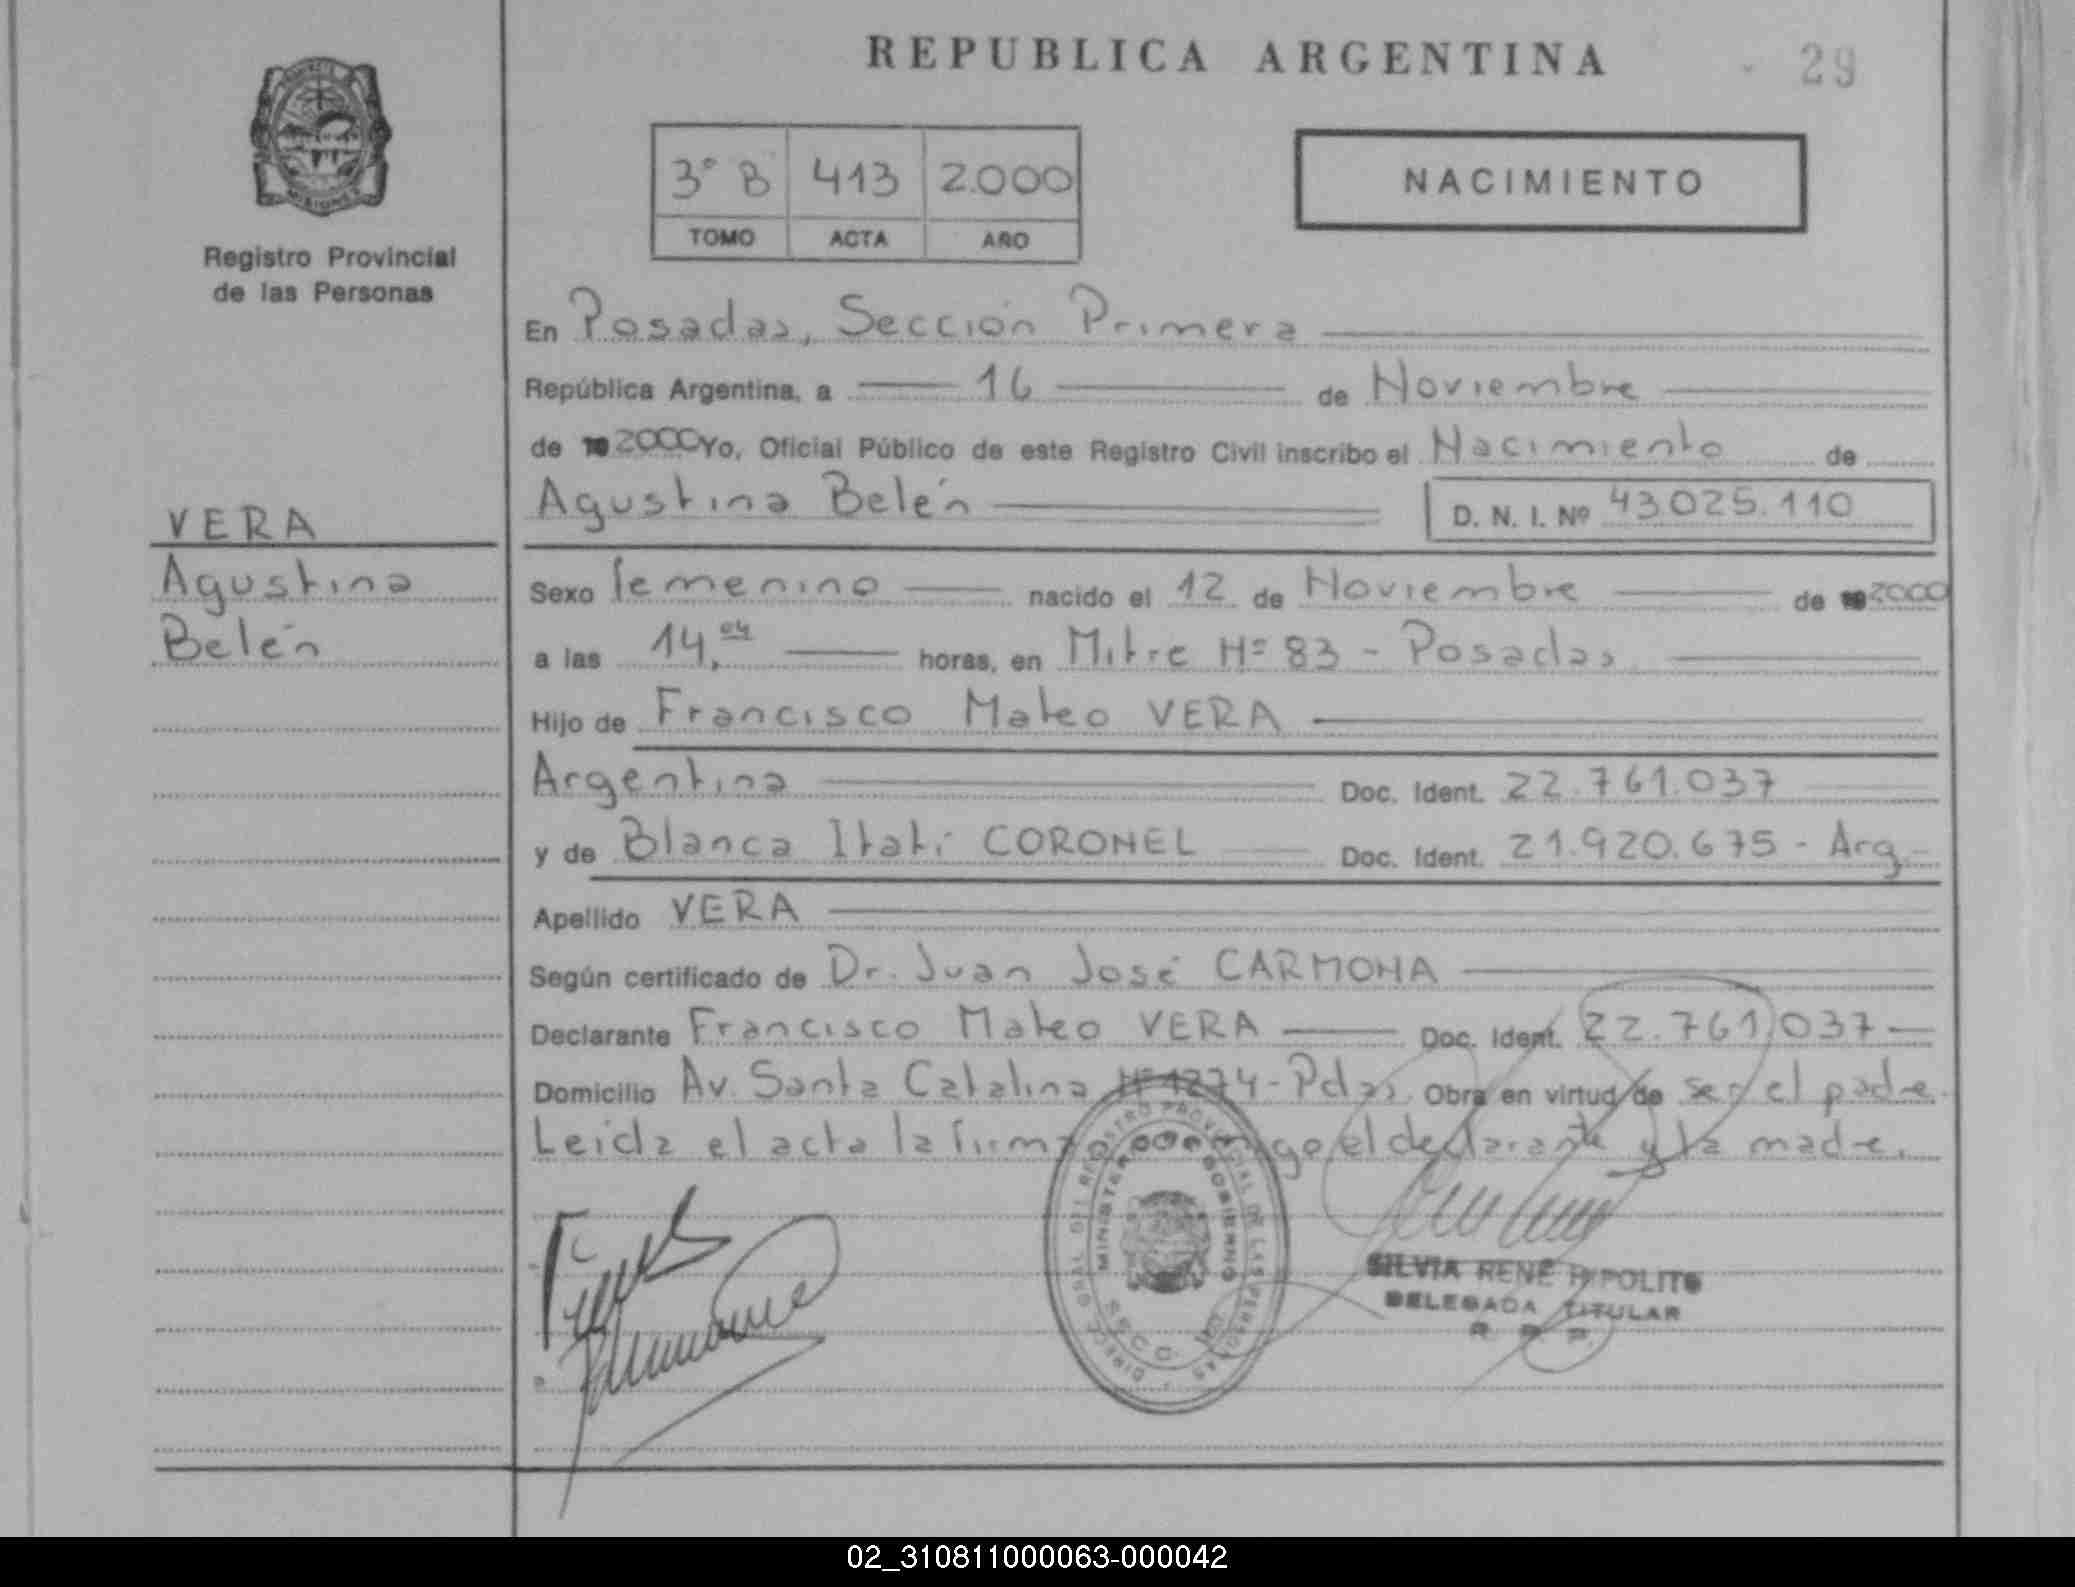 REPUBLICA ARGENTINA
29
3° B 413 2.000
TOMO ACTA AÑO
NACIMIENTO
MISIONES
Registro Provincial
de las Personas
En Posadas, Sección Primera
República Argentina, a 16 de Noviembre
de 19 2000 Yo, Oficial Público de este Registro Civil inscribo el Nacimiento de
Agustina Belén D. N. I. Nº 43.025.110
VERA
Agustina
Belén
Sexo femenino nacido el 12 de Noviembre de 19 2000
a las 14,04 horas, en Mitre Nº 83 - Posadas
Hijo de Francisco Mateo VERA
Argentina Doc. Ident. 22.761.037
y de Blanca Itatí CORONEL Doc. Ident. 21.920.675 - Arg.-
Apellido VERA
Según certificado de Dr. Juan José CARMONA
Declarante Francisco Mateo VERA Doc. Ident. 22.761.037
Domicilio Av. Santa Catalina Nº 1274 - Pdas Obra en virtud de ser el padre.
Leida el acta la firma el declarante y la madre.
DIRECC. GRAL. DEL REGISTRO PROVINCIAL DE LAS PERSONAS
MINISTERIO DE GOBIERNO
SECC. 1
SILVIA RENÉ HIPOLITO
DELEGADA TITULAR
R. P. P.
02_310811000063-000042